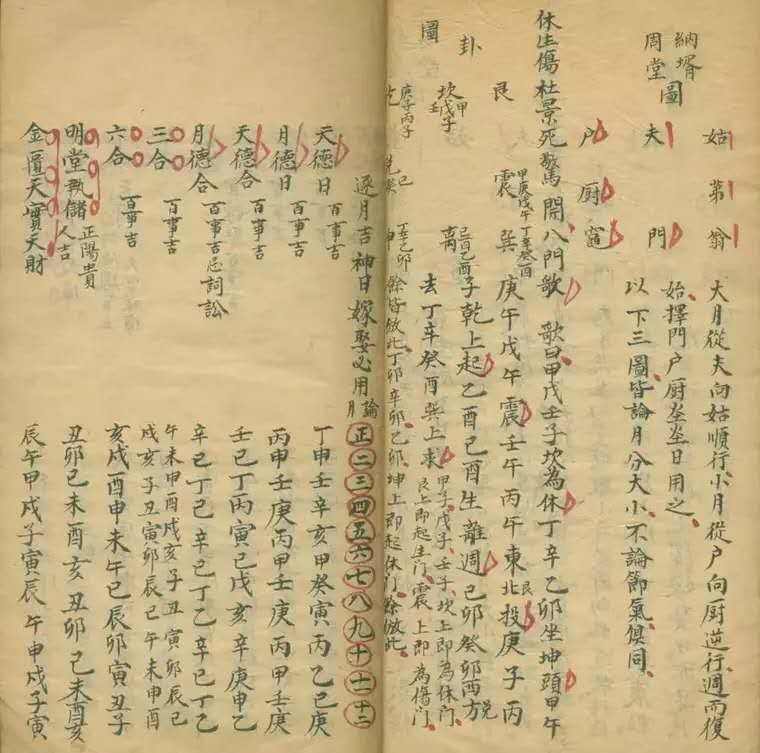 納壻周堂圖
姑 第 翁
夫 門
戶 廚 竈
大月從夫向姑順行小月從戶向厨逆行週而復
始擇門户厨灶日用之
以下三圖皆論月分大小不論節氣俱同
休生傷杜景死驚開八門歌
歌曰甲戊壬子坎為休丁辛乙卯坐坤頭甲午
庚午戊午震壬午丙午東北艮投庚子丙
子乾上起乙酉己酉生離週己卯癸卯西方兌
去丁辛癸酉巽上求
甲子戊子壬子坎上即為休門
艮上即起生門震上即為傷門
餘皆倣此丁卯辛卯乙卯坤上即起休門餘倣此
卦圖
艮
震 甲庚戊午
巽 丁辛癸酉
坎 甲戊子壬
離 己酉乙酉
庚子丙子
丁辛乙卯
逐月吉神日嫁娶必用論
月 正 二 三 四 五 六 七 八 九 十 十一 十二
天德日 百事吉 丁申壬辛亥甲癸寅丙乙巳庚
月德日 百事吉 丙甲壬庚丙甲壬庚丙甲壬庚
天德合 百事吉 壬巳丁丙寅己戊亥辛庚申乙
月德合 百事吉忌詞訟 辛己丁乙辛己丁乙辛己丁乙
三合 百事吉 午未申酉戌亥子丑寅卯辰巳
戌亥子丑寅卯辰巳午未申酉
六合 百事吉 亥戌酉申未午巳辰卯寅丑子
明堂執儲 正陽貴人吉 丑卯巳未酉亥丑卯巳未酉亥
金匱天寳天財 辰午申戌子寅辰午申戌子寅